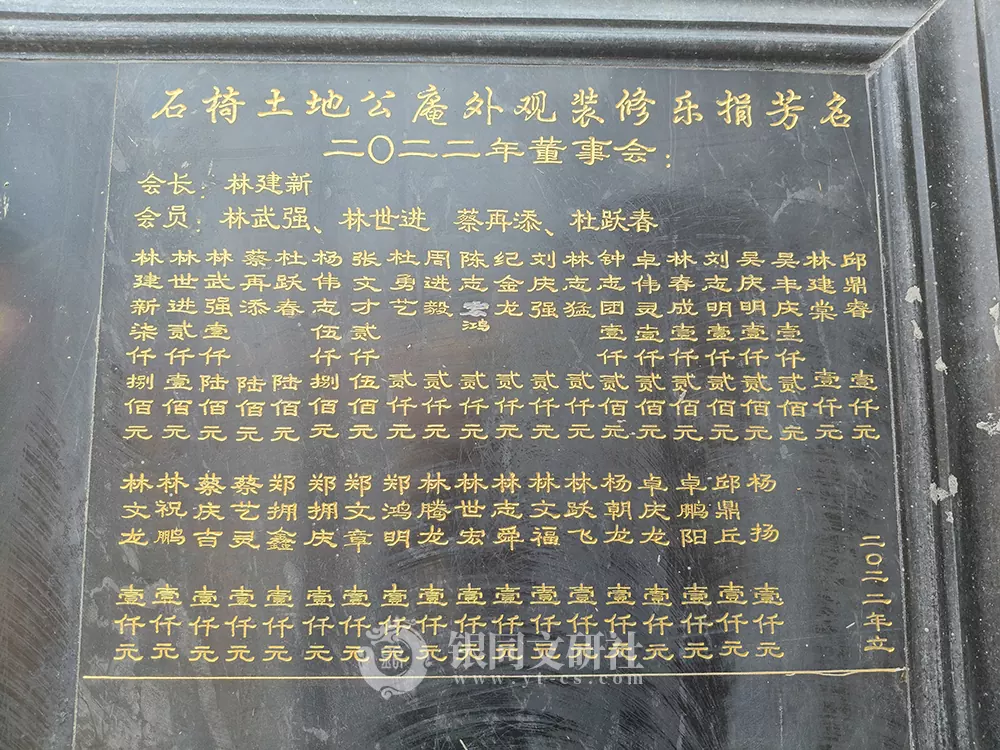 石椅土地公庵外观装修乐捐芳名
二〇二二年董事会：
会长：林建新
会员：林武强、林世进 蔡再添、杜跃春
林建新柒仟捌佰元
林世进贰仟壹佰元
林武强壹仟陆佰元
蔡再添 陆佰元
杜跃春 陆佰元
杨伟志伍仟捌佰元
张文才贰仟伍佰元
杜勇艺 贰仟元
周进毅 贰仟元
陈志鸿 贰仟元
纪金龙 贰仟元
刘庆强 贰仟元
林志猛 贰仟元
钟志团壹仟贰佰元
卓伟灵壹仟贰佰元
林春成壹仟贰佰元
刘志明壹仟贰佰元
吴庆明壹仟贰佰元
吴丰庆壹仟贰佰元
林建棠 壹仟元
邱鼎睿 壹仟元
林文龙 壹仟元
林祝鹏 壹仟元
蔡庆吉 壹仟元
蔡艺灵 壹仟元
郑拥鑫 壹仟元
郑拥庆 壹仟元
郑文章 壹仟元
郑鸿明 壹仟元
林腾龙 壹仟元
林世宏 壹仟元
林志舜 壹仟元
林文福 壹仟元
林跃飞 壹仟元
杨朝龙 壹仟元
卓庆龙 壹仟元
卓鹏阳 壹仟元
邱鼎丘 壹仟元
杨扬 壹仟元
二〇二二年立
银同文研社
www.yt-cs.com